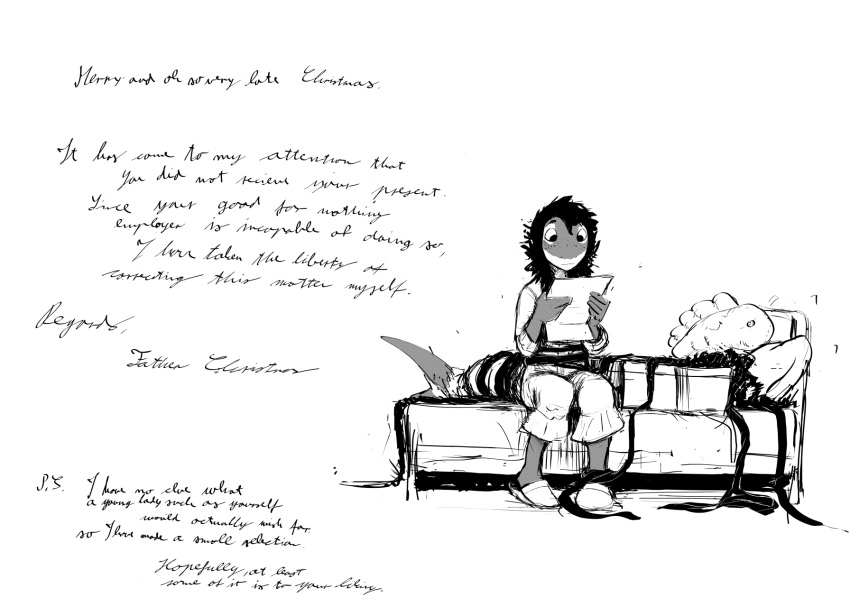 Merry and oh so very late Christmas.
It has come to my attention that
you did not recieve your present.
Since your good for nothing
employer is incapable of doing so,
I have taken the liberty of
correcting this matter myself.
Regards,
Father Christmas
P.S. I have no clue what
a young lady such as yourself
would actually wish for,
so I have made a small selection.
Hopefully, at least
some of it is to your liking.